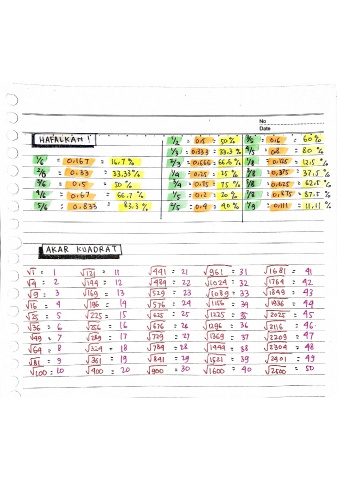 No
Date
HAFALKAN !
1/2 = 0.5 = 50%
3/5 = 0.6 = 60%
1/3 = 0.333 = 33.3%
4/5 = 0.8 = 80%
1/6 = 0.167 = 16.7%
2/3 = 0.666 = 66.6%
1/8 = 0.125 = 12.5%
2/6 = 0.33 = 33.33%
1/4 = 0.25 = 25%
3/8 = 0.375 = 37.5%
3/6 = 0.5 = 50%
3/4 = 0.75 = 75%
5/8 = 0.625 = 62.5%
4/6 = 0.67 = 66.7%
1/5 = 0.2 = 20%
7/8 = 0.875 = 87.5%
5/6 = 0.833 = 83.3%
2/5 = 0.4 = 40%
1/9 = 0.111 = 11.11%
AKAR KUADRAT
√1 = 1 √121 = 11 √441 = 21 √961 = 31 √1681 = 41
√4 = 2 √144 = 12 √484 = 22 √1024 = 32 √1764 = 42
√9 = 3 √169 = 13 √529 = 23 √1089 = 33 √1849 = 43
√16 = 4 √196 = 14 √576 = 24 √1156 = 34 √1936 = 44
√25 = 5 √225 = 15 √625 = 25 √1225 = 35 √2025 = 45
√36 = 6 √256 = 16 √676 = 26 √1296 = 36 √2116 = 46
√49 = 7 √289 = 17 √729 = 27 √1369 = 37 √2209 = 47
√64 = 8 √324 = 18 √784 = 28 √1444 = 38 √2304 = 48
√81 = 9 √361 = 19 √841 = 29 √1521 = 39 √2401 = 49
√100 = 10 √400 = 20 √900 = 30 √1600 = 40 √2500 = 50